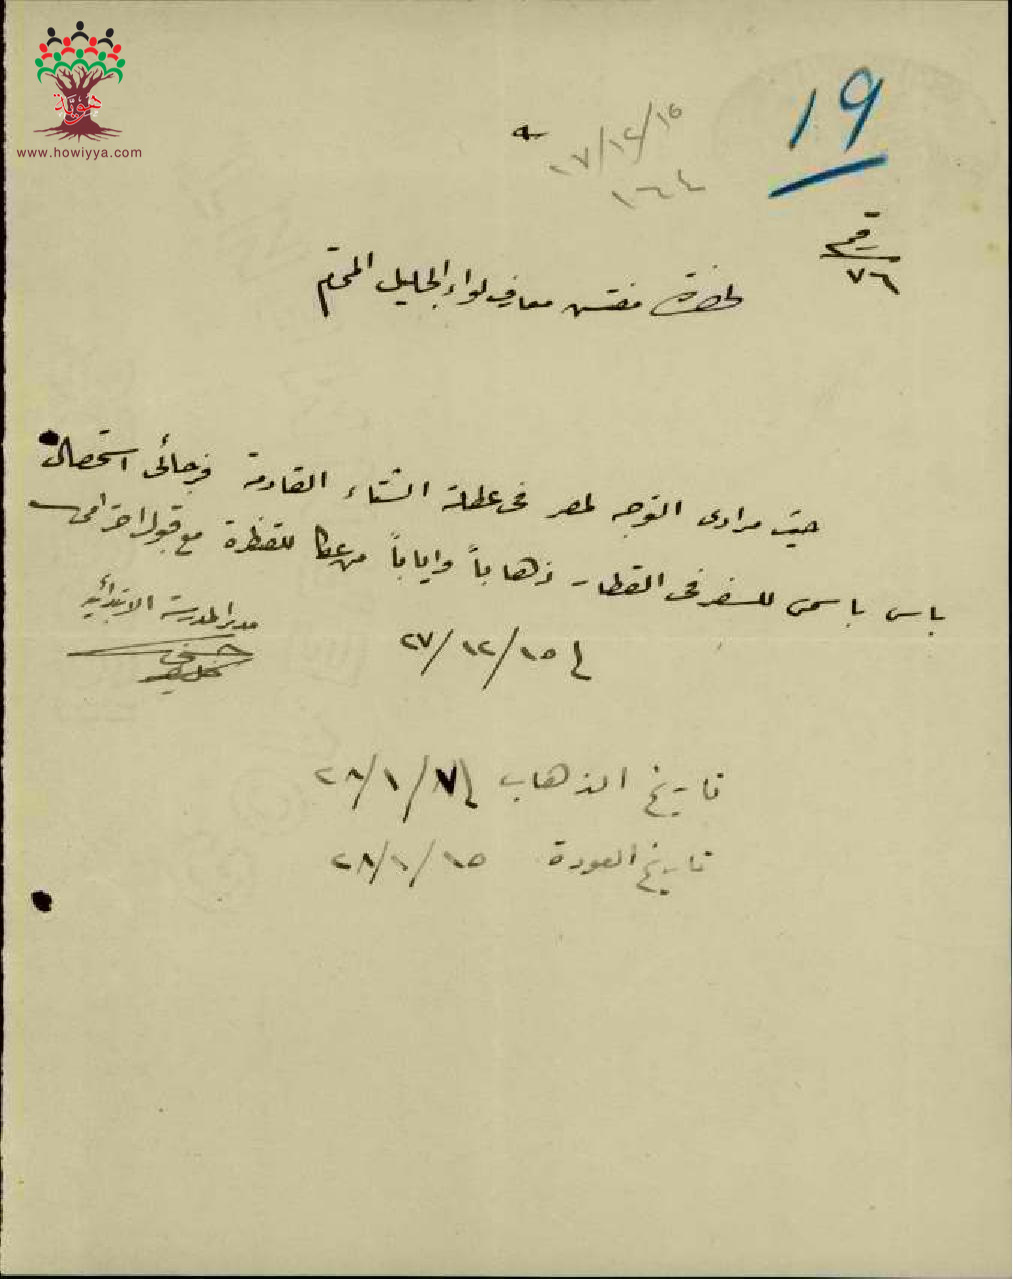 هوية
www.howiyya.com
19
٢٧/١٢/١٥
١٦٤
رقم
٧٦
لحضرة مفتش معارف لواء الجليل المحترم
حيث مرادي التوجه لمصر في عطلة الشتاء القادمة فرجائي استحصال
باس باسمي للسفر في القطار ذهاباً واياباً من عكا للقنطرة مع قبول احترامي
مدير المدرسة الابتدائية
٢٧/١٢/١٥
تاريخ الذهاب ٢٨/١/٧
تاريخ العودة ٢٨/١/١٥